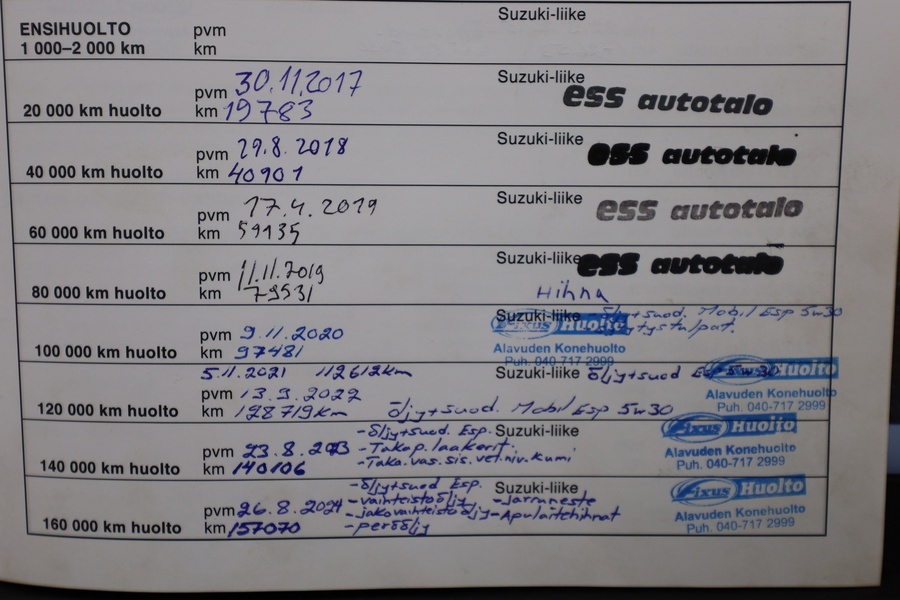 Suzuki-liike
ENSIHUOLTO pvm
1 000–2 000 km km
Suzuki-liike
pvm 30.11.2017 ess autotalo
20 000 km huolto km 19783
Suzuki-liike
pvm 29.8.2018 ess autotalo
40 000 km huolto km 40901
Suzuki-liike
pvm 17.4.2019 ess autotalo
60 000 km huolto km 59135
Suzuki-liike ess autotalo
pvm 11.11.2019
80 000 km huolto km 79531 Hihna
Suzuki-liike Öljy+suod. Mobil Esp 5w30
Fixus Huolto
pvm 9.11.2020
100 000 km huolto km 97481 Alavuden Konehuolto
Puh. 040-717 2999
5.11.2021 112612km Suzuki-liike Öljy+suod Esp 5w30 Fixus Huolto
pvm 13.9.2022 Alavuden Konehuolto
120 000 km huolto km 128719km Öljy+suod. Mobil Esp 5w30 Puh. 040-717 2999
-Öljy+suod. Esp. Suzuki-liike Fixus Huolto
pvm 23.8.2023 -Takap.laakerit. Alavuden Konehuolto
140 000 km huolto km 140106 -Taka.vas.sis.vet.niv.kumi Puh. 040-717 2999
-Öljy+suod Esp. Suzuki-liike Fixus Huolto
-vaihteistoöljy -Jarruneste
pvm 26.8.2024 -jakovaihteistoöljy -Apulaitehihnat Alavuden Konehuolto
160 000 km huolto km 157070 -peräöljy Puh. 040-717 2999